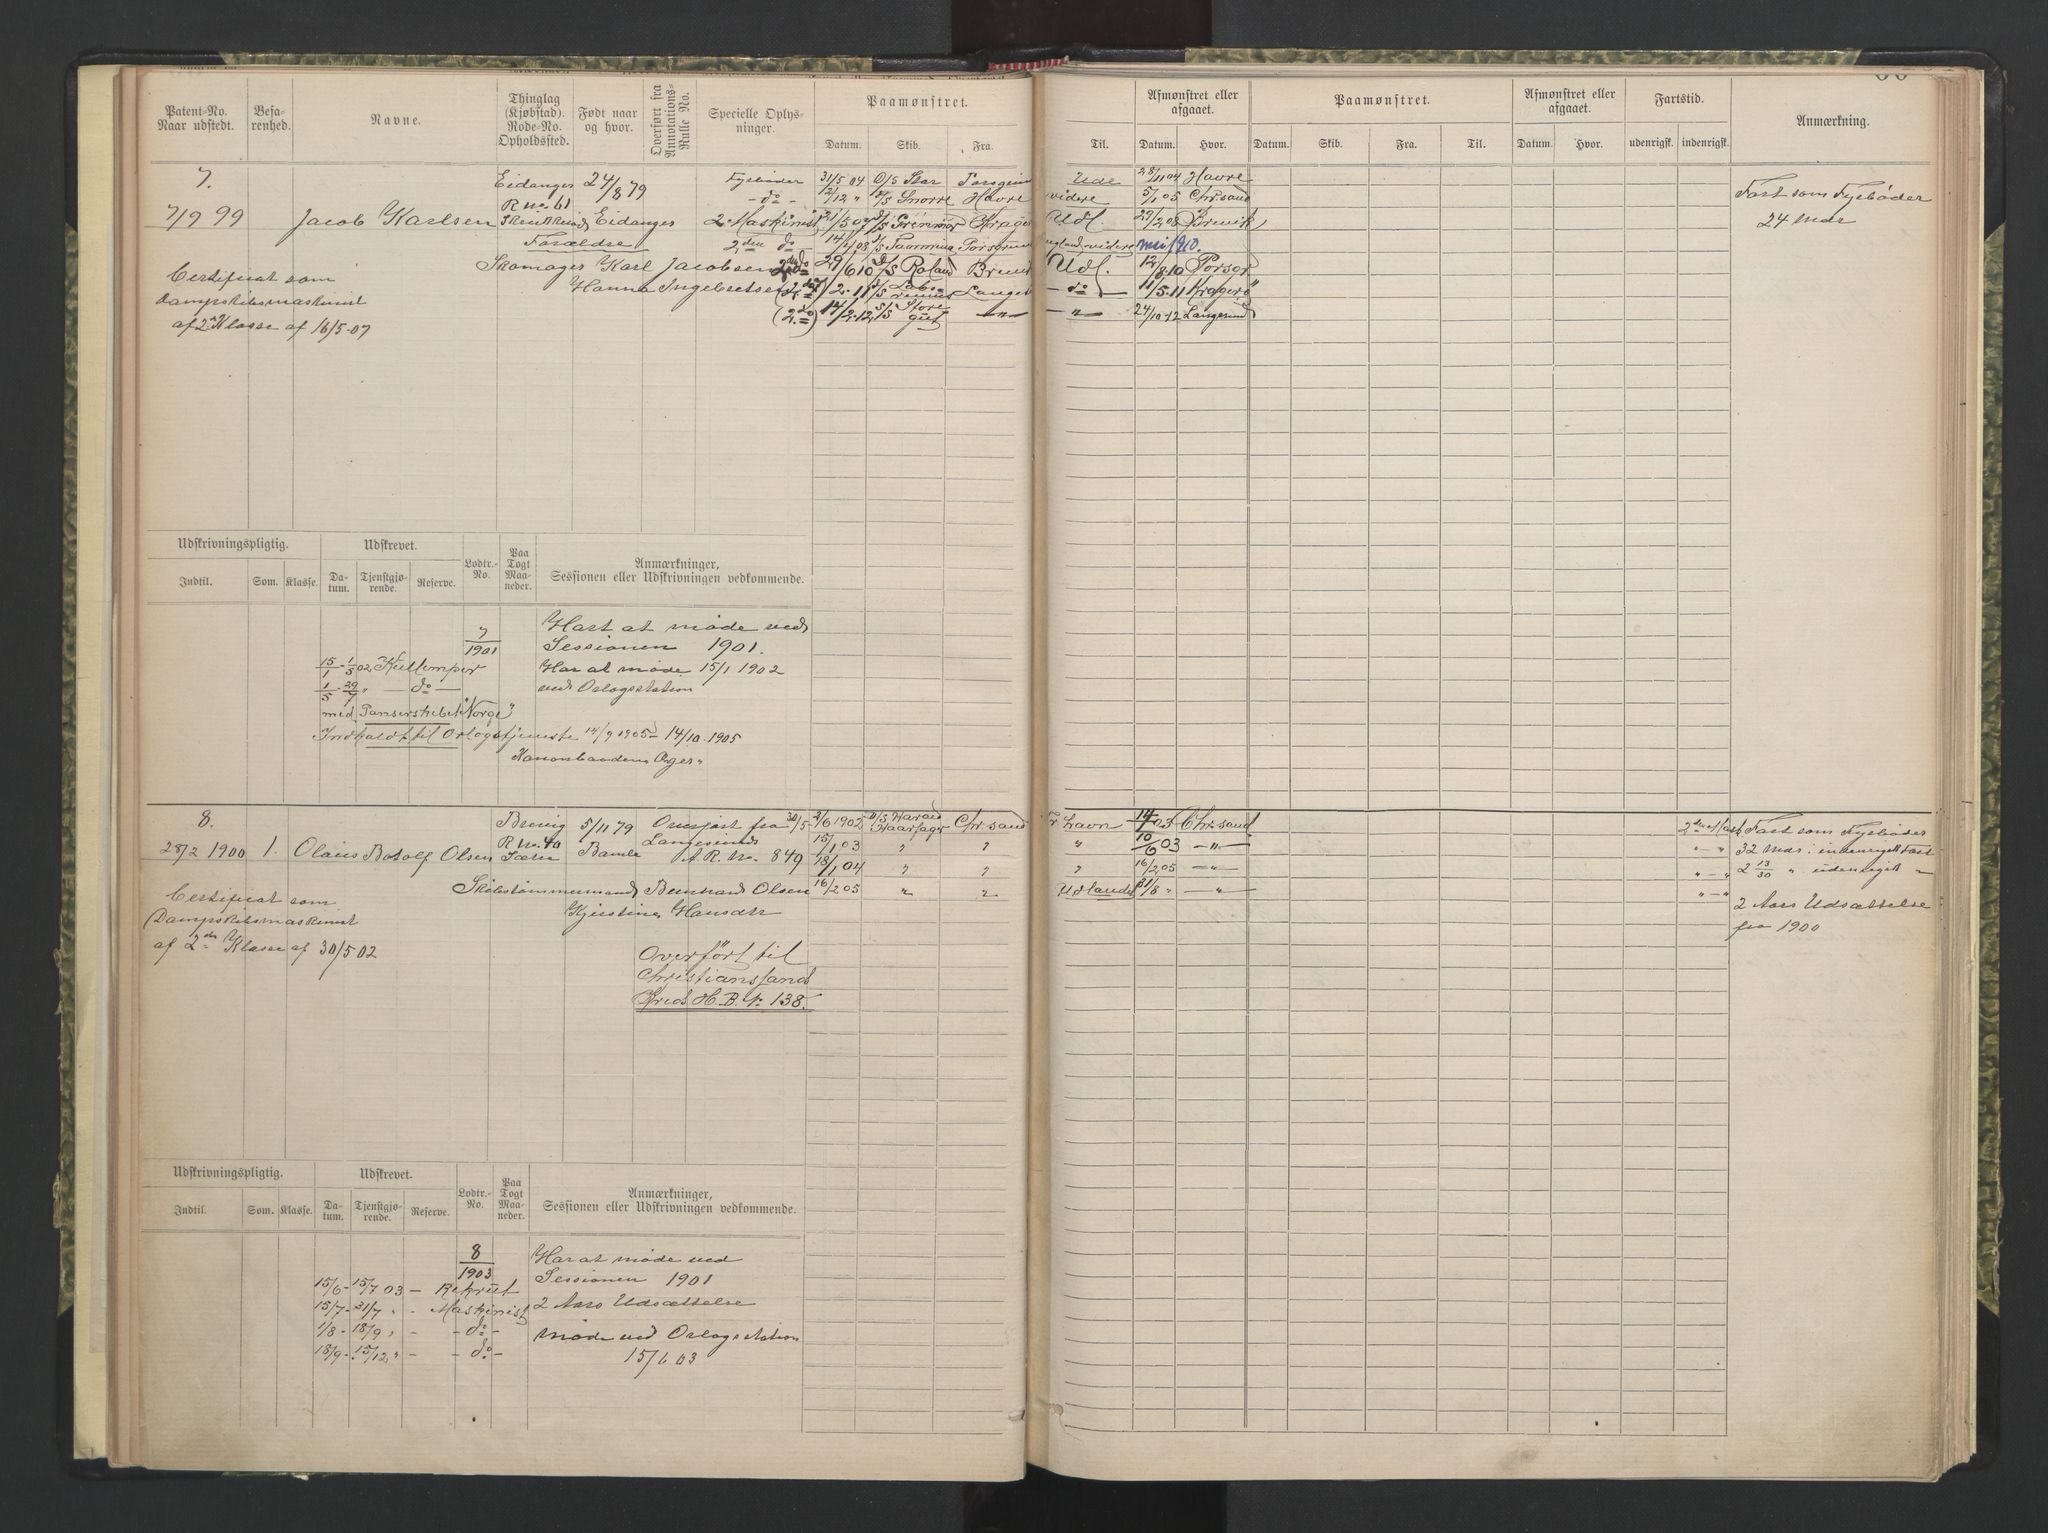 Patent-No. Naar udstedt. Befarenhed. Navne. Thinglag (Kjøbstad). Rode-No. Opholdssted. Født naar og hvor. Overført fra Annotations-Rulle No. Specielle Oplysninger. Paamønstret. Datum. Skib. Fra.
Til. Afmønstret eller afgaaet. Datum. Hvor. Paamønstret. Datum. Skib. Fra. Til. Afmønstret eller afgaaet. Datum. Hvor. Fartstid. udenrigsk. indenrigsk. Anmærkning.
7. Eidanger 24/8 79 Fyrbøder 31/5 04 D/S Star Porsgrund Ude 28/11 04 Havre
R No. 61 - do - 2/12 " D/S Snorre Havre videre 5/1 05 Chr.sand Fart som Fyrbøder
7/9 99 Jacob Karlsen Eidanger 2. Maskinist 21/5 07 Udl. 29/2 08 Brevik 24 Mdr
Forældre 2den do 14/4 08 D/S Taormina Porsgrund England videre mai 1910.
Certificat som Skomager Karl Jacobsen 2den do 29/6 10 D/S Roland Brevik Udl. 12/8 10 Porsgr
Dampskibsmaskinist Hanna Ingebretsen (2. do) /2. 11 Langes - do - 11/5. 11 Kragerø
af 2. Klasse af 16/5-07 (2. do) 14/2. 12 D/S Storegut - " - - " - 24/10-12 Langesund
Udskrivningspligtig. Udskrevet. Lodtr.-No. Paa Togt Maaneder. Anmærkninger, Sessionen eller Udskrivningen vedkommende.
Indtil. Som. Klasse. Datum. Tjenstgjørende. Reserve.
7/1901 Havt at møde ved
Sessionen 1901.
15/1 - 1/5 02 Kullemper Har at møde 15/1 1902
1/5 - 29/7 " - do - ved Orlogsstation
med Panserskibet "Norge"
Indkaldt til Orlogstjeneste 14/9 1905 - 14/10. 1905
Kanonbaaden Æger "
8. Brevig 5/11 79 Overført fra 30/5 2/6 1902 D/S Harald Haarfager Chr.sand Fr.havn 14/1 03 Chr.sand 2den Mask Fart som Fyrbøder
R No. 40 Langesunds 15/1 03 " " " 10/6 03 - " - " - " 32 Mdr. indenrigsk Fart
28/2 1900 1. Olaus Botolf Olsen Bamle A. R. No. 849 18/1 04 " " " 16/2 05 - " - " - " 2 13/30 " udenrigsk "
Certificat som Skibstømmermand Bernhard Olsen 16/2 05 " " Udlandet 31/8 " - " - " - " 2 Aars Udsættelse
Dampskibsmaskinist Kjerstine Hansdtr fra 1900
af 2den Klasse af 30/5 02 Overført til
Christianssand
Kreds H.B. № 138.
Udskrivningspligtig. Udskrevet. Lodtr.-No. Paa Togt Maaneder. Anmærkninger, Sessionen eller Udskrivningen vedkommende.
Indtil. Som. Klasse. Datum. Tjenstgjørende. Reserve.
8/1903 Har at møde ved
15/6 - 15/7 03 - Rekrut Sessionen 1901
15/7 - 31/7 " - Maskinist 2 Aars Udsættelse
1/8 - 18/9 " - do - møde ved Orlogsstation
18/9 - 15/12 " - - do - 15/6 03